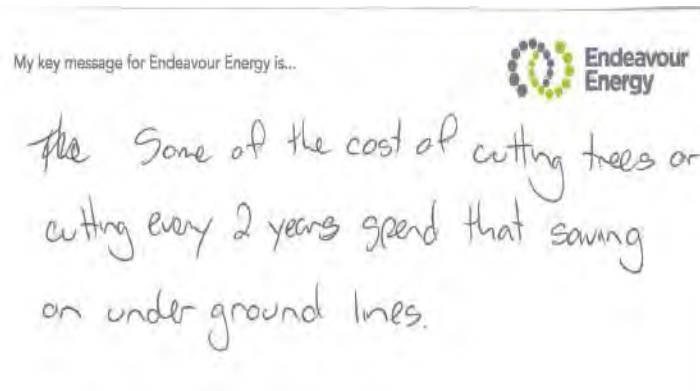 My key message for Endeavour Energy is...
Endeavour
Energy
Some of the cost of cutting trees or
cutting every 2 years spend that saving
on under ground lines.